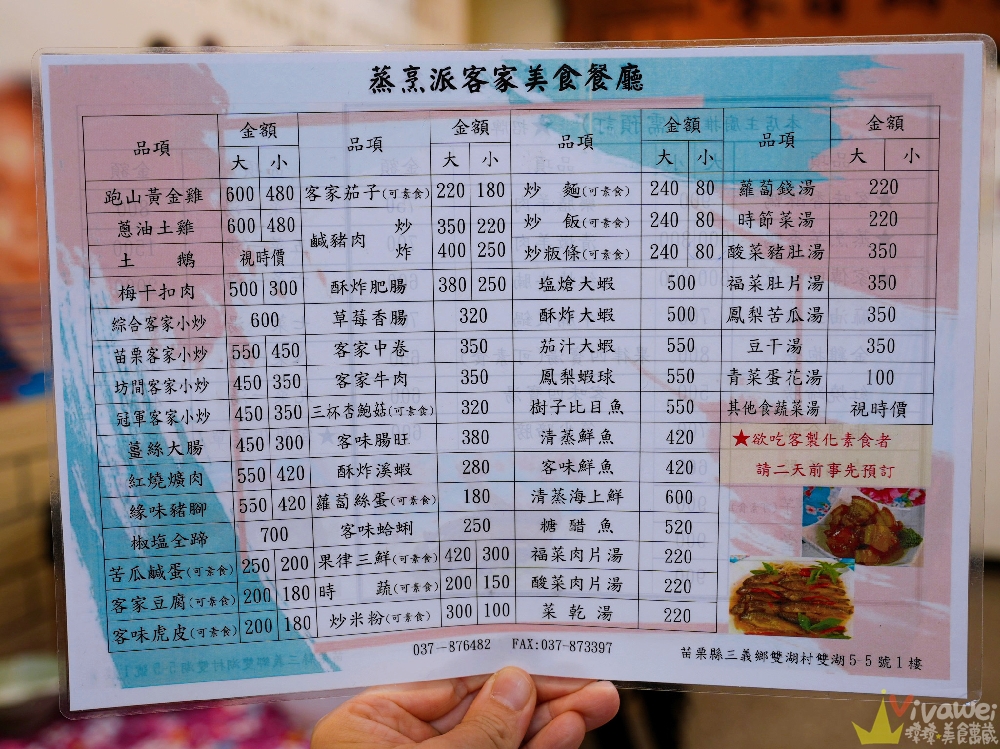 蒸烹派客家美食餐廳
品項 金額 大 小
跑山黃金雞 600 480
蔥油土雞 600 480
土 鵝 視時價
梅干扣肉 500 300
綜合客家小炒 600
苗栗客家小炒 550 450
坊間客家小炒 450 350
冠軍客家小炒 450 350
薑絲大腸 450 300
紅燒爌肉 550 420
緣味豬腳 550 420
椒塩全蹄 700
苦瓜鹹蛋(可素食) 250 200
客家豆腐(可素食) 200 180
客味虎皮(可素食) 200 180
品項 金額 大 小
客家茄子(可素食) 220 180
鹹豬肉 炒 350 220
炸 400 250
酥炸肥腸 380 250
草莓香腸 320
客家中卷 350
客家牛肉 350
三杯杏鮑菇(可素食) 320
客味腸旺 380
酥炸溪蝦 280
蘿蔔絲蛋(可素食) 180
客味蛤蜊 250
果律三鮮(可素食) 420 300
時 蔬(可素食) 200 150
炒米粉(可素食) 300 100
品項 金額 大 小
炒 麵(可素食) 240 80
炒 飯(可素食) 240 80
炒粄條(可素食) 240 80
塩熗大蝦 500
酥炸大蝦 500
茄汁大蝦 550
鳳梨蝦球 550
樹子比目魚 550
清蒸鮮魚 420
客味鮮魚 420
清蒸海上鮮 600
糖醋魚 520
福菜肉片湯 220
酸菜肉片湯 220
菜乾湯 220
品項 金額 大 小
蘿蔔錢湯 220
時節菜湯 220
酸菜豬肚湯 350
福菜肚片湯 350
鳳梨苦瓜湯 350
豆干湯 350
青菜蛋花湯 100
其他食蔬菜湯 視時價
★欲吃客製化素食者
請二天前事先預訂
037-876482 FAX:037-873397
苗栗縣三義鄉雙湖村雙湖5-5號1樓
Vivawei
美食萬歲